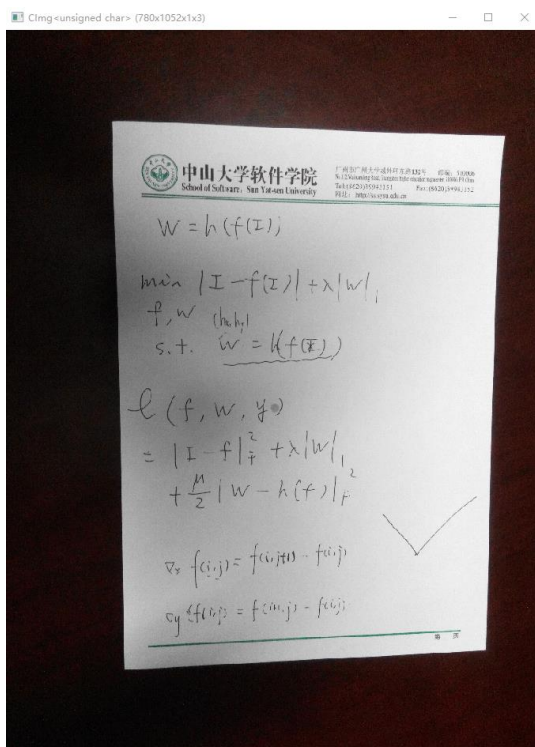 CImg<unsigned char> (780x1052x1x3)
中山大学软件学院
School of Software, Sun Yat-sen University
W = h(f(I))
min |I - f(I)| + λ|W|₁
f, w (hx, hy)
s.t. W = h(f(I))
ℓ(f, w, y)
= |I - f|²_F + λ|W|₁
+ μ/2 |W - h(f)|²_F
∇x f(i,j) = f(i,j+1) - f(i,j)
∇y f(i,j) = f(i+1,j) - f(i,j)
第 页